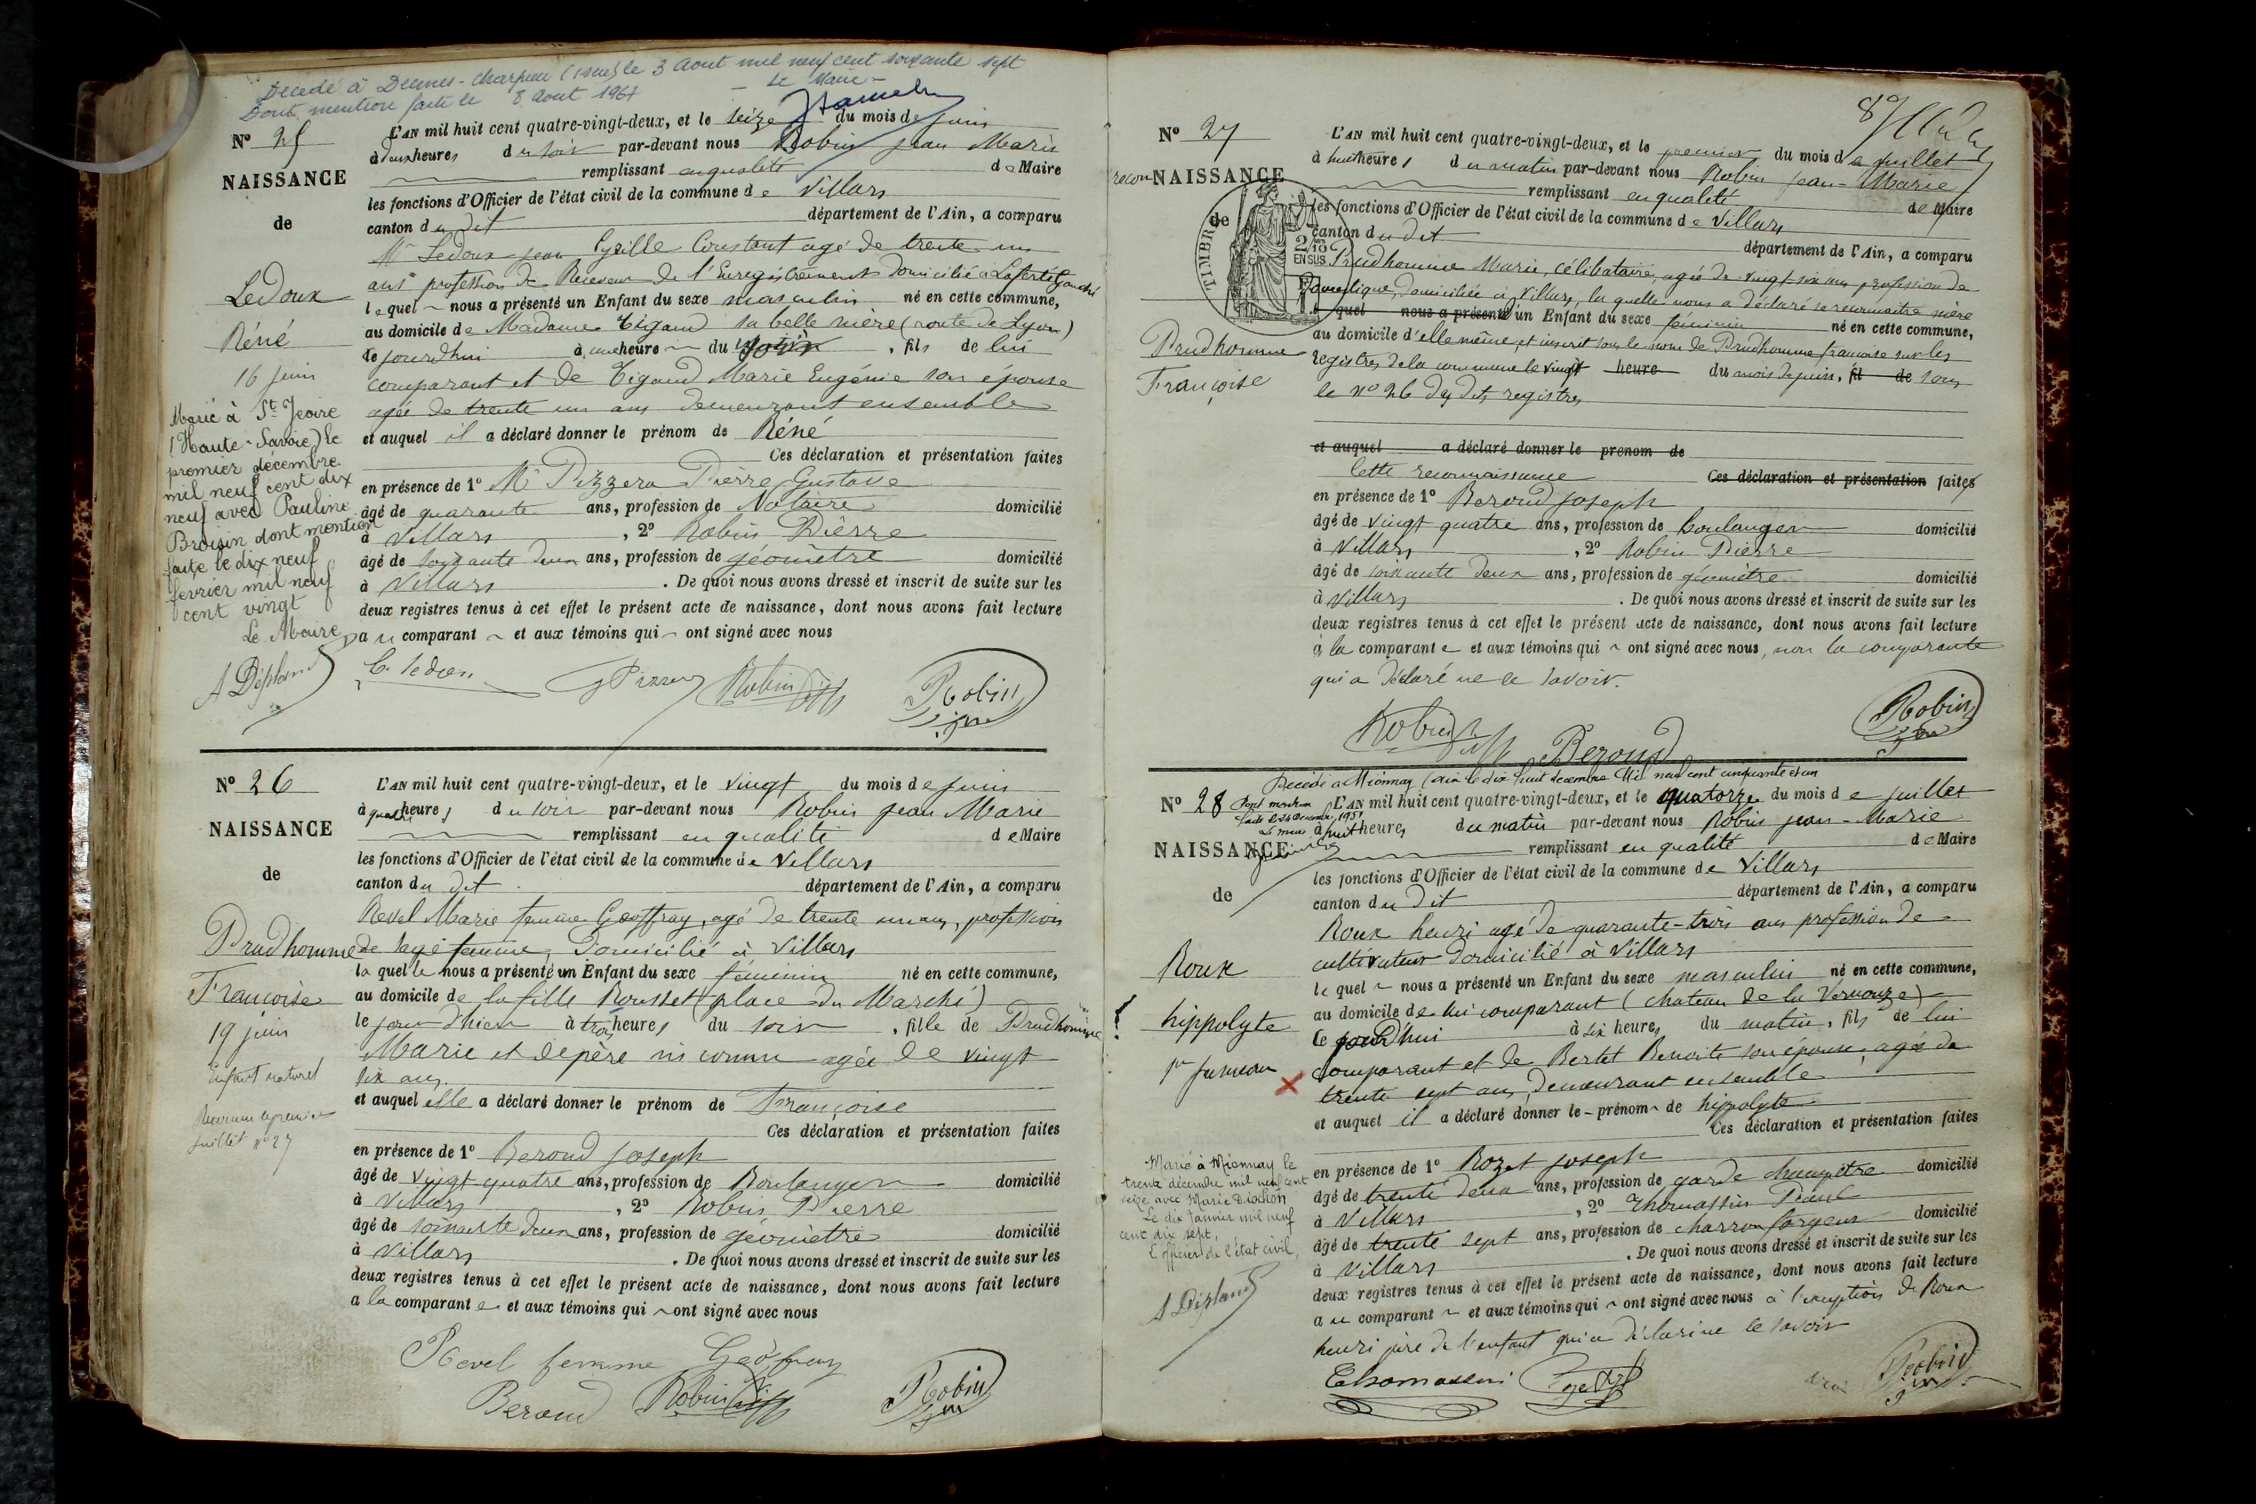 Décédé à Decines-Charpieu (Isère) le 3 Aout mil neuf cent soixante sept
Dont mention faite le 8 Aout 1967 - Le Maire -
N° 25
NAISSANCE
de
Ledoux
Réné
16 juin
Marié à St Jeoire
(Haute-Savoie) le
premier décembre
mil neuf cent dix
neuf avec Pauline
Broisin dont mention
faite le dix neuf
fevrier mil neuf
cent vingt
Le Maire
L'AN mil huit cent quatre-vingt-deux, et le seize du mois de juin
à deux heures du soir par-devant nous Robin Jean Marie
remplissant en qualité de Maire
les fonctions d'Officier de l'état civil de la commune de Villars
canton du dit département de l'Ain, a comparu
Mr Ledoux Jean Cyrille Constant agé de trente-un
ans profession de Receveur de l'Enregistrement domicilié à Laferté Gaucher
lequel nous a présenté un Enfant du sexe masculin né en cette commune,
au domicile de Madame Tigaud sa belle mère (route de Lyon)
ce jourd'hui à une heure du , fils de lui
comparant et de Tigaud Marie Eugénie son épouse
agée de trente un ans demeurant ensemble
et auquel il a déclaré donner le prénom de Réné
Ces déclaration et présentation faites
en présence de 1° Mr Pizzera Pierre Gustave
âgé de quarante ans, profession de Notaire domicilié
à Villars , 2° Robin Pierre
âgé de soixante deux ans, profession de géomètre domicilié
à Villars . De quoi nous avons dressé et inscrit de suite sur les
deux registres tenus à cet effet le présent acte de naissance, dont nous avons fait lecture
au comparant et aux témoins qui ont signé avec nous
C. Ledoux Pizzera Robin Robin
N° 26
NAISSANCE
de
Prudhomme
Francoise
19 juin
Enfant naturel
Reconnu le premier
juillet n° 27
L'AN mil huit cent quatre-vingt-deux, et le vingt du mois de juin
à quatre heures du soir par-devant nous Robin Jean Marie
remplissant en qualité de Maire
les fonctions d'Officier de l'état civil de la commune de Villars
canton du dit département de l'Ain, a comparu
Revel Marie femme Geoffray, agé de trente un ans, profession
de sage femme, Domicilié à Villars
laquelle nous a présenté un Enfant du sexe féminin né en cette commune,
au domicile de la fille Rousset (place du Marché)
le jour d'hier à trois heures du soir , fille de Prudhomme
Marie et de père inconnu agée de vingt
six ans
et auquel elle a déclaré donner le prénom de Françoise
Ces déclaration et présentation faites
en présence de 1° Beroud Joseph
âgé de vingt quatre ans, profession de Boulanger domicilié
à Villars , 2° Robin Pierre
âgé de soixante deux ans, profession de géomètre domicilié
à Villars . De quoi nous avons dressé et inscrit de suite sur les
deux registres tenus à cet effet le présent acte de naissance, dont nous avons fait lecture
a la comparante et aux témoins qui ont signé avec nous
Revel femme Geoffray
Beroud Robin Robin
N° 27
recon NAISSANCE
de
TIMBRE
2/10 EN SUS
Prudhomme
Françoise
L'AN mil huit cent quatre-vingt-deux, et le premier du mois de juillet
à huit heures du matin par-devant nous Robin Jean-Marie
remplissant en qualité de Maire
les fonctions d'Officier de l'état civil de la commune de Villars
canton du dit département de l'Ain, a comparu
Prudhomme Marie, célibataire, agée de vingt-six ans profession de
domestique, domiciliée à Villars, la quelle nous a déclaré se reconnaitre mère
quel nous a présenté d'un Enfant du sexe féminin né en cette commune,
au domicile d'elle même, et inscrit sous le nom de Prudhomme francoise sur les
registres de la commune le vingt heure du mois de juin, fil de sous
le n° 26 des dits registres
et auquel a déclaré donner le prenom de
Cette reconnaissance Ces déclaration et présentation faites
en présence de 1° Beroud Joseph
âgé de vingt quatre ans, profession de boulanger domicilié
à Villars , 2° Robin Pierre
âgé de soixante deux ans, profession de géomètre domicilié
à Villars . De quoi nous avons dressé et inscrit de suite sur les
deux registres tenus à cet effet le présent acte de naissance, dont nous avons fait lecture
à la comparante et aux témoins qui ont signé avec nous, non la comparante
qui a déclaré ne le savoir.
Robin Beroud Robin
Décédé a Mionnay (Ain) le dix huit decembre Mil neuf cent cinquante et un
N° 28
NAISSANCE
de
Roux
hippolyte
1er jumeau
Marié à Mionnay le
trente décembre mil neuf cent
seize avec Marie
Le dix Janvier mil neuf
cent dix sept,
L'officier de l'état civil,
L'AN mil huit cent quatre-vingt-deux, et le quatorze du mois de juillet
à huit heures du matin par-devant nous Robin Jean-Marie
remplissant en qualité de Maire
les fonctions d'Officier de l'état civil de la commune de Villars
canton du dit département de l'Ain, a comparu
Roux henri agé de quarante-trois ans profession de
cultivateur domicilié à Villars
lequel nous a présenté un Enfant du sexe masculin né en cette commune,
au domicile de lui comparant (chateau de la Vernouze)
Ce jourd'hui à six heures du matin, fils de lui
comparant et de Bertet Benoite son épouse, agée de
trente sept ans, demeurant ensemble
et auquel il a déclaré donner le prénom de hippolyte
Ces déclaration et présentation faites
en présence de 1° Rozet Joseph
âgé de trente deux ans, profession de garde champetre domicilié
à Villars , 2° Thomassin Paul
âgé de trente sept ans, profession de charron forgeur domicilié
à Villars . De quoi nous avons dressé et inscrit de suite sur les
deux registres tenus à cet effet le présent acte de naissance, dont nous avons fait lecture
au comparant et aux témoins qui ont signé avec nous à l'exeption de Roux
henri père de l'enfant qui a déclaré ne le savoir
Thomassin Rozet Robin